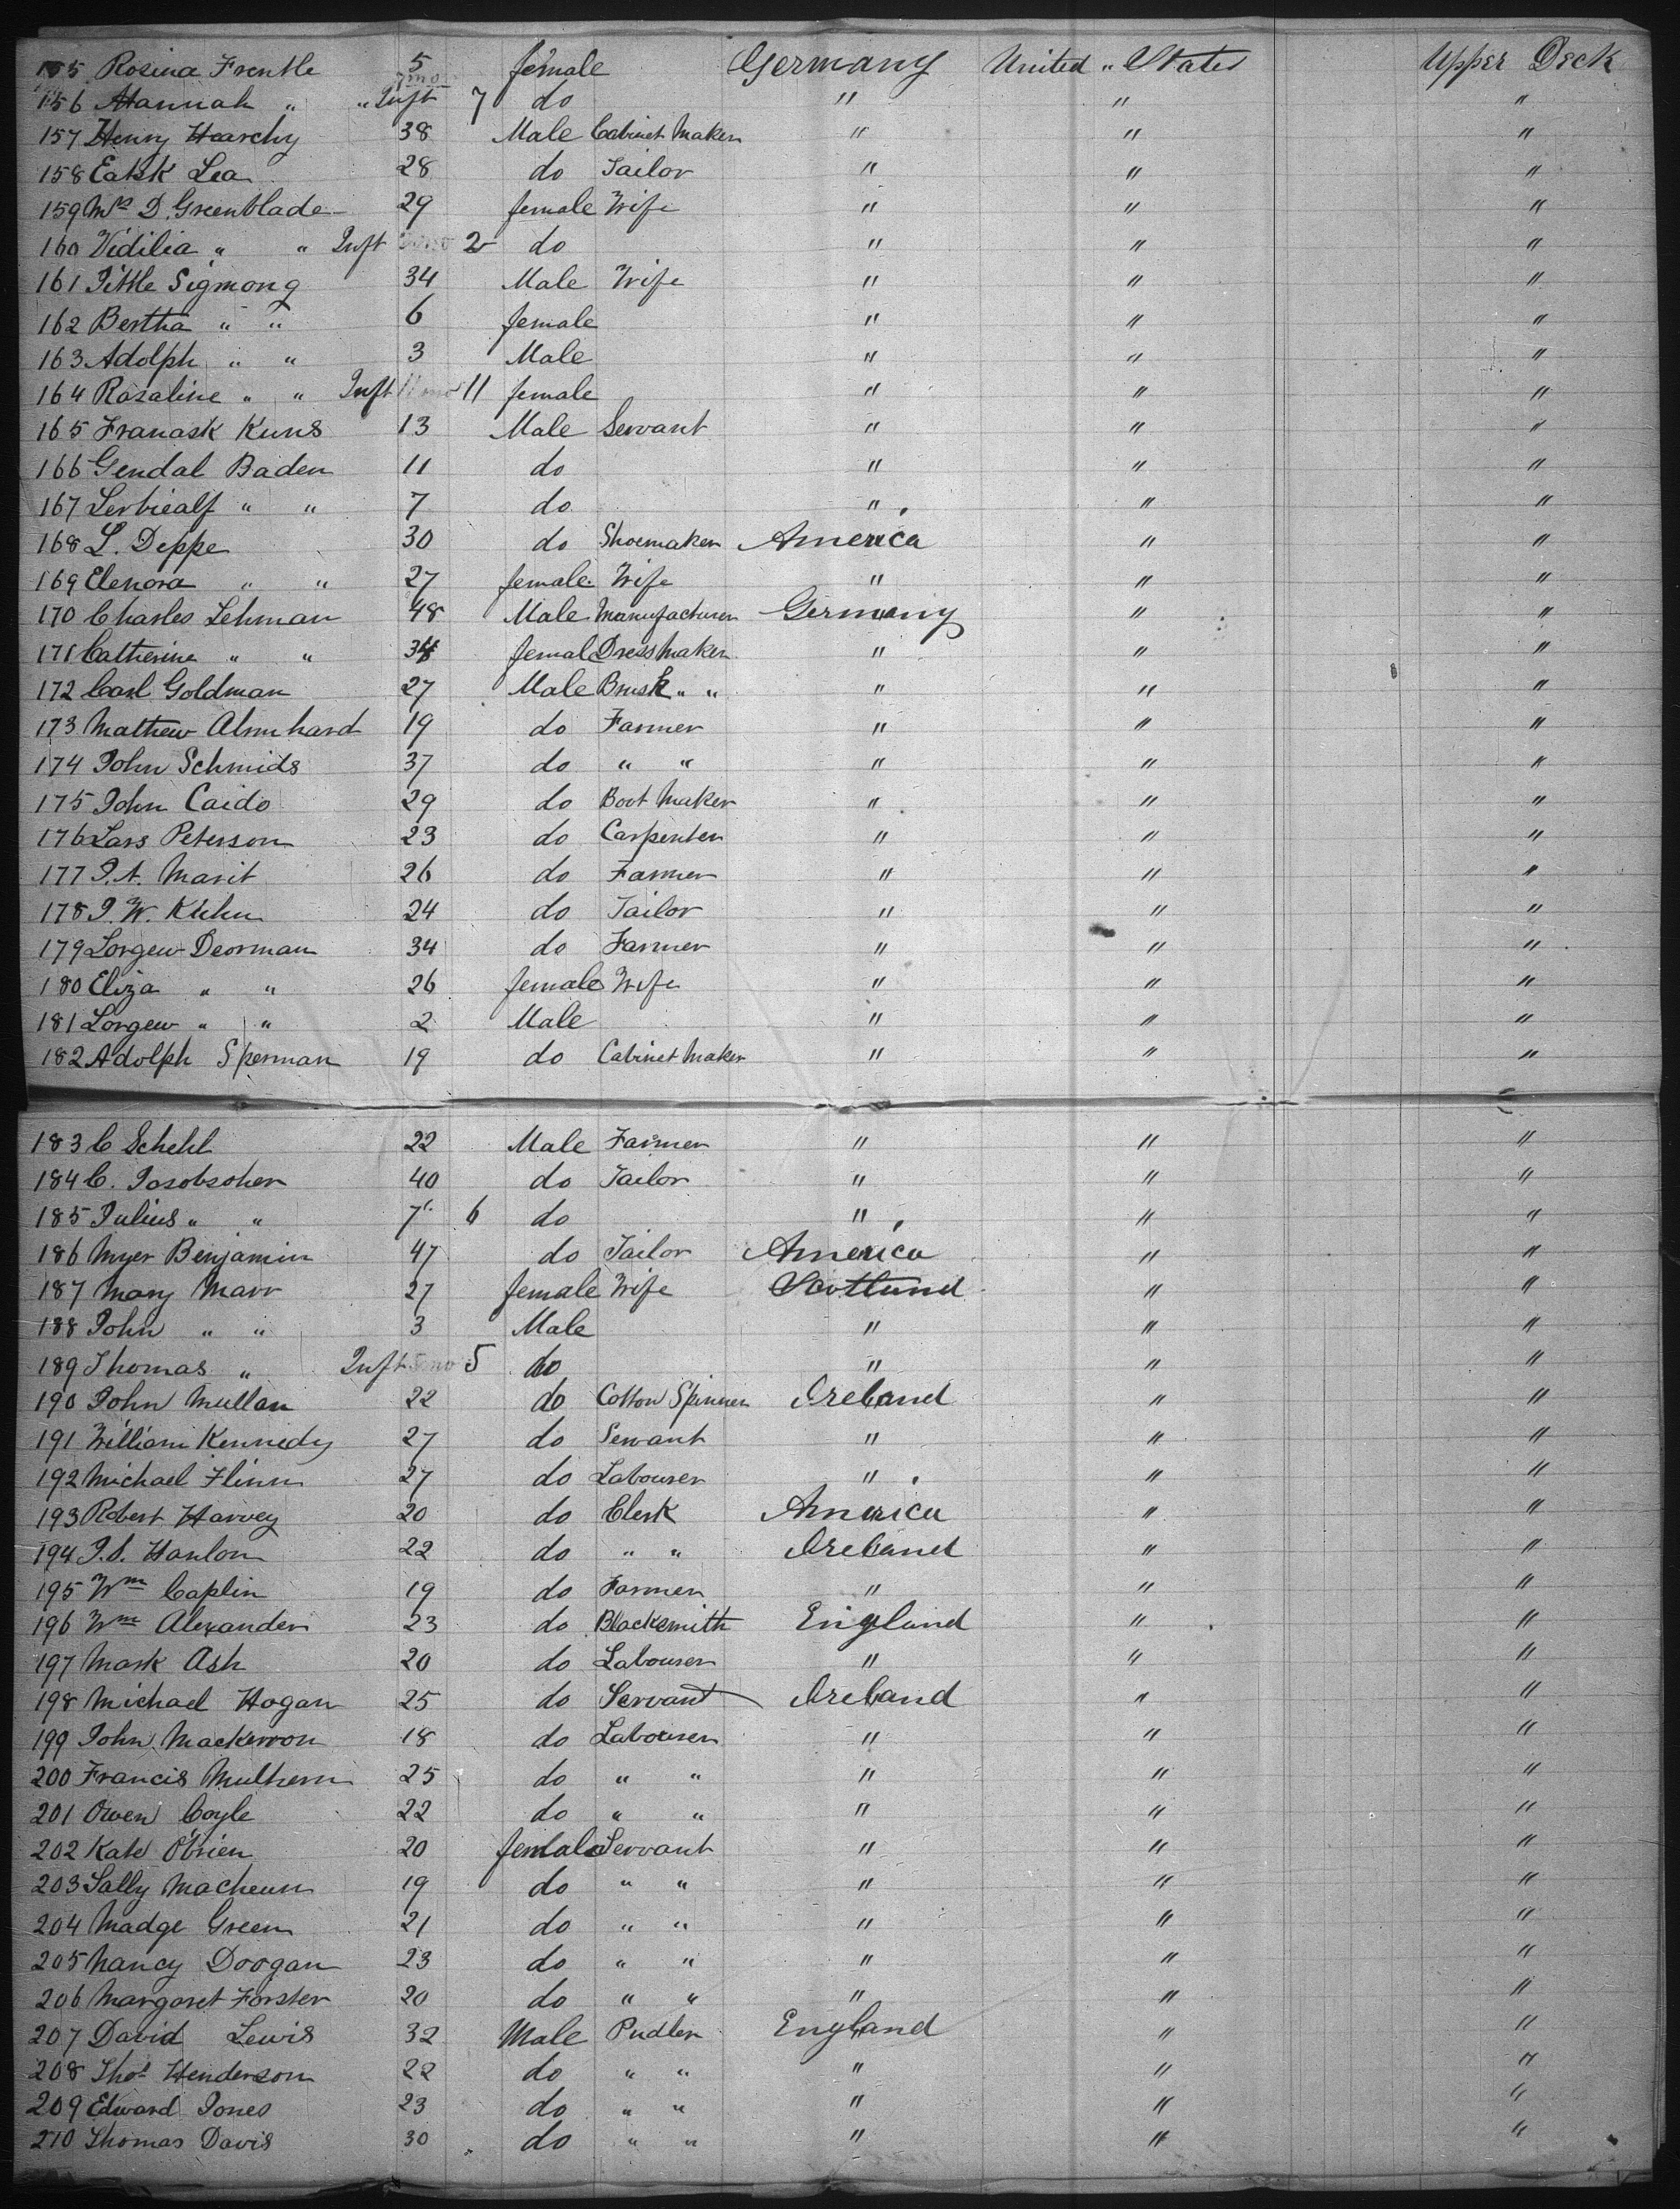 155 Rosina Frentle 5 female Germany United " States Upper Deck
156 Hannah " " Inft 7mo 7 do " " "
157 Henry Hearchy 38 Male Cabinet Maker " " "
158 Eakk Lea 28 do Tailor " " "
159 Mrs D. Greenblade 29 female Wife " " "
160 Vidilia " " Inft 2 do " " "
161 Tittle Sigmong 34 Male Wife " " "
162 Bertha " " 6 female " " "
163 Adolph " " 3 Male " " "
164 Rosaline " " Inft 11 mo 11 female " " "
165 Franask Kuns 13 Male Servant " " "
166 Gendal Baden 11 do " " "
167 Lerbiealf " " 7 do " " "
168 L. Deppe 30 do Shoemaker America " "
169 Elenora " " 27 female Wife " " "
170 Charles Lehman 48 Male Manufacturer Germany " "
171 Catherine " " 34 female Dress Maker " " "
172 Carl Goldman 27 Male Brush " " " " "
173 Mathew Almhard 19 do Farmer " " "
174 John Schmids 37 do " " " " "
175 John Caido 29 do Boot Maker " " "
176 Lars Peterson 23 do Carpenter " " "
177 J. A. Marit 26 do Farmer " " "
178 J. W. Kuhn 24 do Tailor " " "
179 Lorgew Deorman 34 do Farmer " " "
180 Eliza " " 26 female Wife " " "
181 Lorgew " " 2 Male " " "
182 Adolph Sperman 19 do Cabinet Maker " " "
183 C Schehl 22 Male Farmer " " "
184 C. Josobsoher 40 do Tailor " " "
185 Julius " " 7 6 do " " "
186 Myer Benjamin 47 do Tailor America " "
187 Mary Marr 27 female Wife Scotland " "
188 John " " 3 Male " " "
189 Thomas " Inft 5mo 5 do " " "
190 John Mullan 22 do Cotton Spinner Ireland " "
191 William Kennedy 27 do Servant " " "
192 Michael Flinn 27 do Labourer " " "
193 Robert Harvey 20 do Clerk America " "
194 J. S. Hanlon 22 do " " Ireland " "
195 Wm Caplin 19 do Farmer " " "
196 Wm Alexander 23 do Blacksmith England " "
197 Mark Ash 20 do Labourer " " "
198 Michael Hogan 25 do Servant Ireland " "
199 John Mackerron 18 do Labourer " " "
200 Francis Mulhern 25 do " " " " "
201 Owen Coyle 22 do " " " " "
202 Kate O'brien 20 female Servant " " "
203 Sally Macheun 19 do " " " " "
204 Madge Green 21 do " " " " "
205 Nancy Doogan 23 do " " " " "
206 Margaret Forster 20 do " " " " "
207 David Lewis 32 Male Pudler England " "
208 Thos Henderson 22 do " " " " "
209 Edward Jones 23 do " " " " "
210 Thomas Davis 30 do " " " " "